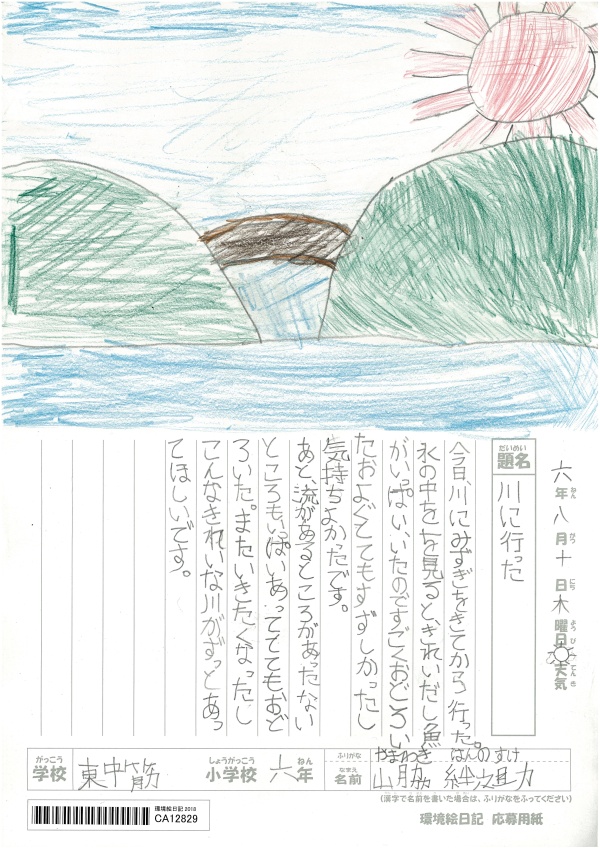 六年八月十日木曜日 天気
おん がつ にち よう び てん き
だいめい
題名
川に行った
今日、川にみずぎをきてから行った。
水の中をを見ると、きれいだし魚
がいっぱいいたのですごくおどろい
たおよぐとてもすずしかったし
気持ちよかったです。
あと、流があるところがあったない
ところもいっぱいあってててもおど
ろいた。またいきたくなったし
こんなきれいな川がずっとあっ
てほしいです。
がっこう しょうがっこう ねん
学校 東中筋 小学校 六年
ふりがな やまわき はんのすけ
なまえ
名前 山脇 絆之助
(漢字で名前を書いた場合は、ふりがなをふってください)
環境絵日記 2018
CA12829
環境絵日記 応募用紙